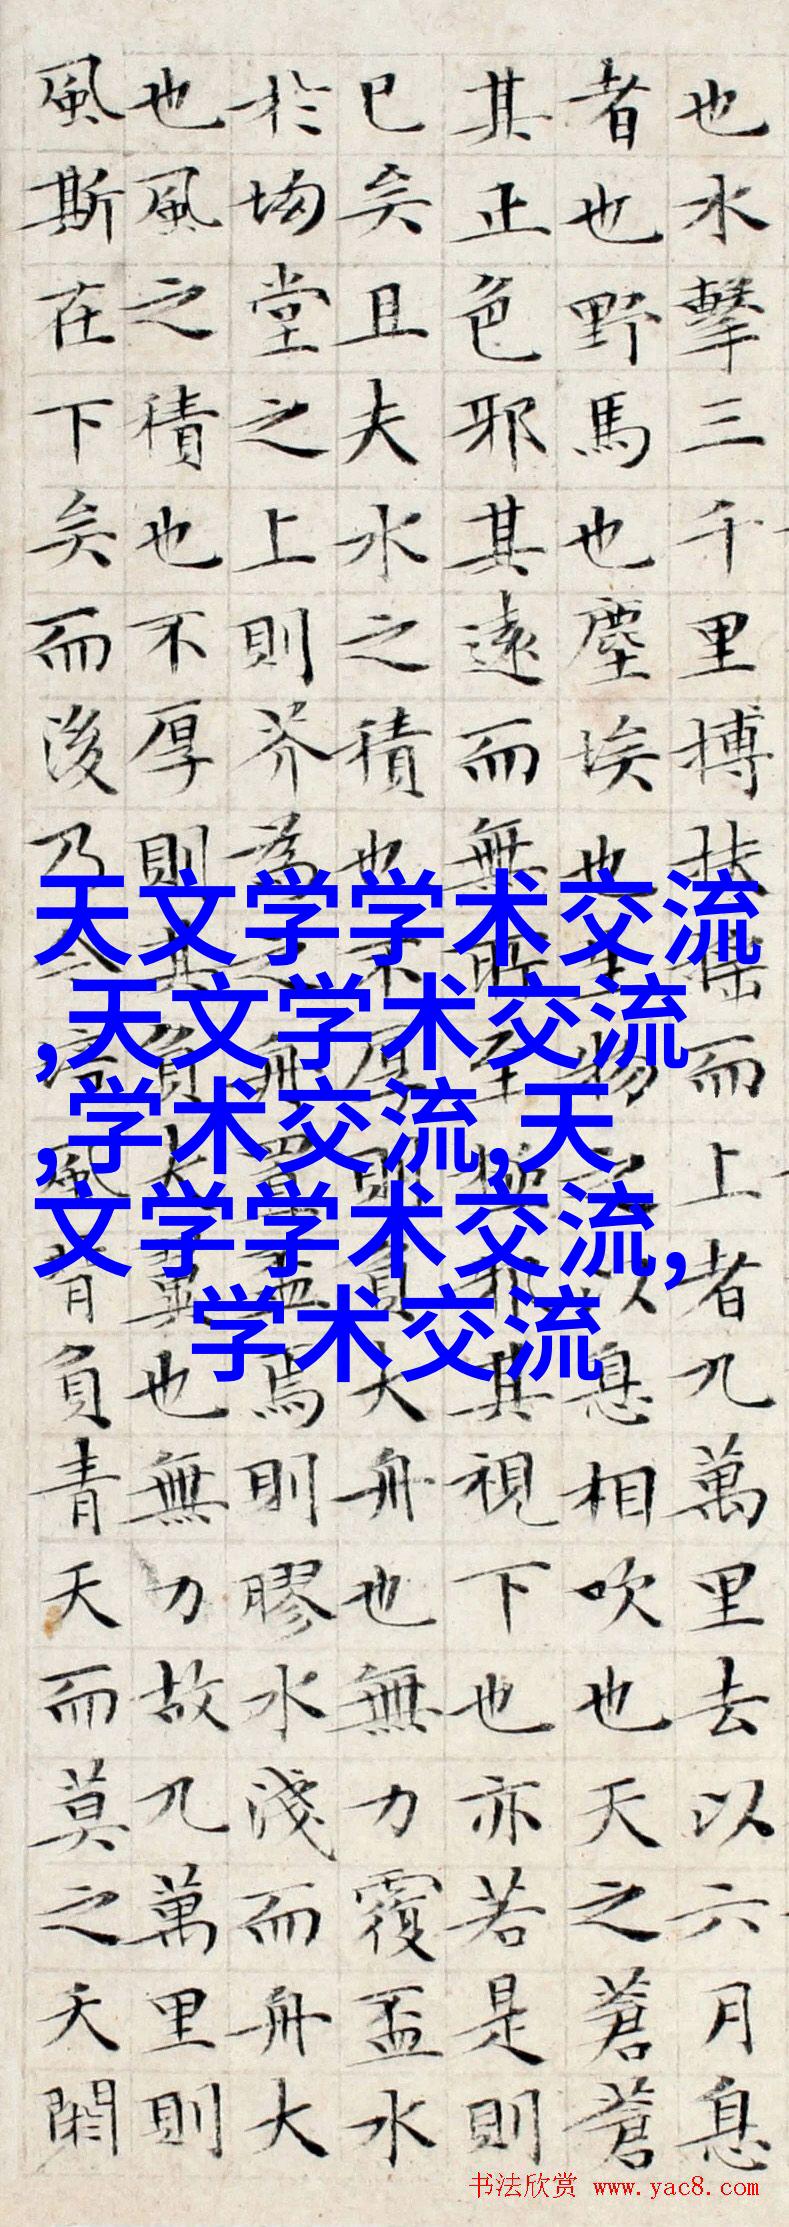 也水擊三千里搏扶搖而上者九萬里去以六月息
者也野馬也塵埃也生物之以息相吹也天之蒼蒼
其正色邪其遠而無所至極邪其視下也亦若是則
已矣且夫水之積也不厚則負大舟也無力覆盃水
於坳堂之上則芥為之舟置盃焉則膠水淺而舟大
也風之積也不厚則其負大翼也無力故九萬里則
風斯在下矣而後乃今培風背負青天而莫之夭閼
天文学学术交流
,天文学术交流
,学术交流,天
文学学术交流,
学术交流
书法欣赏 www.yac8.com